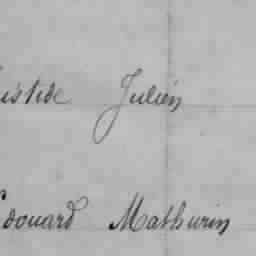 istide Julien
Edouard Mathurin